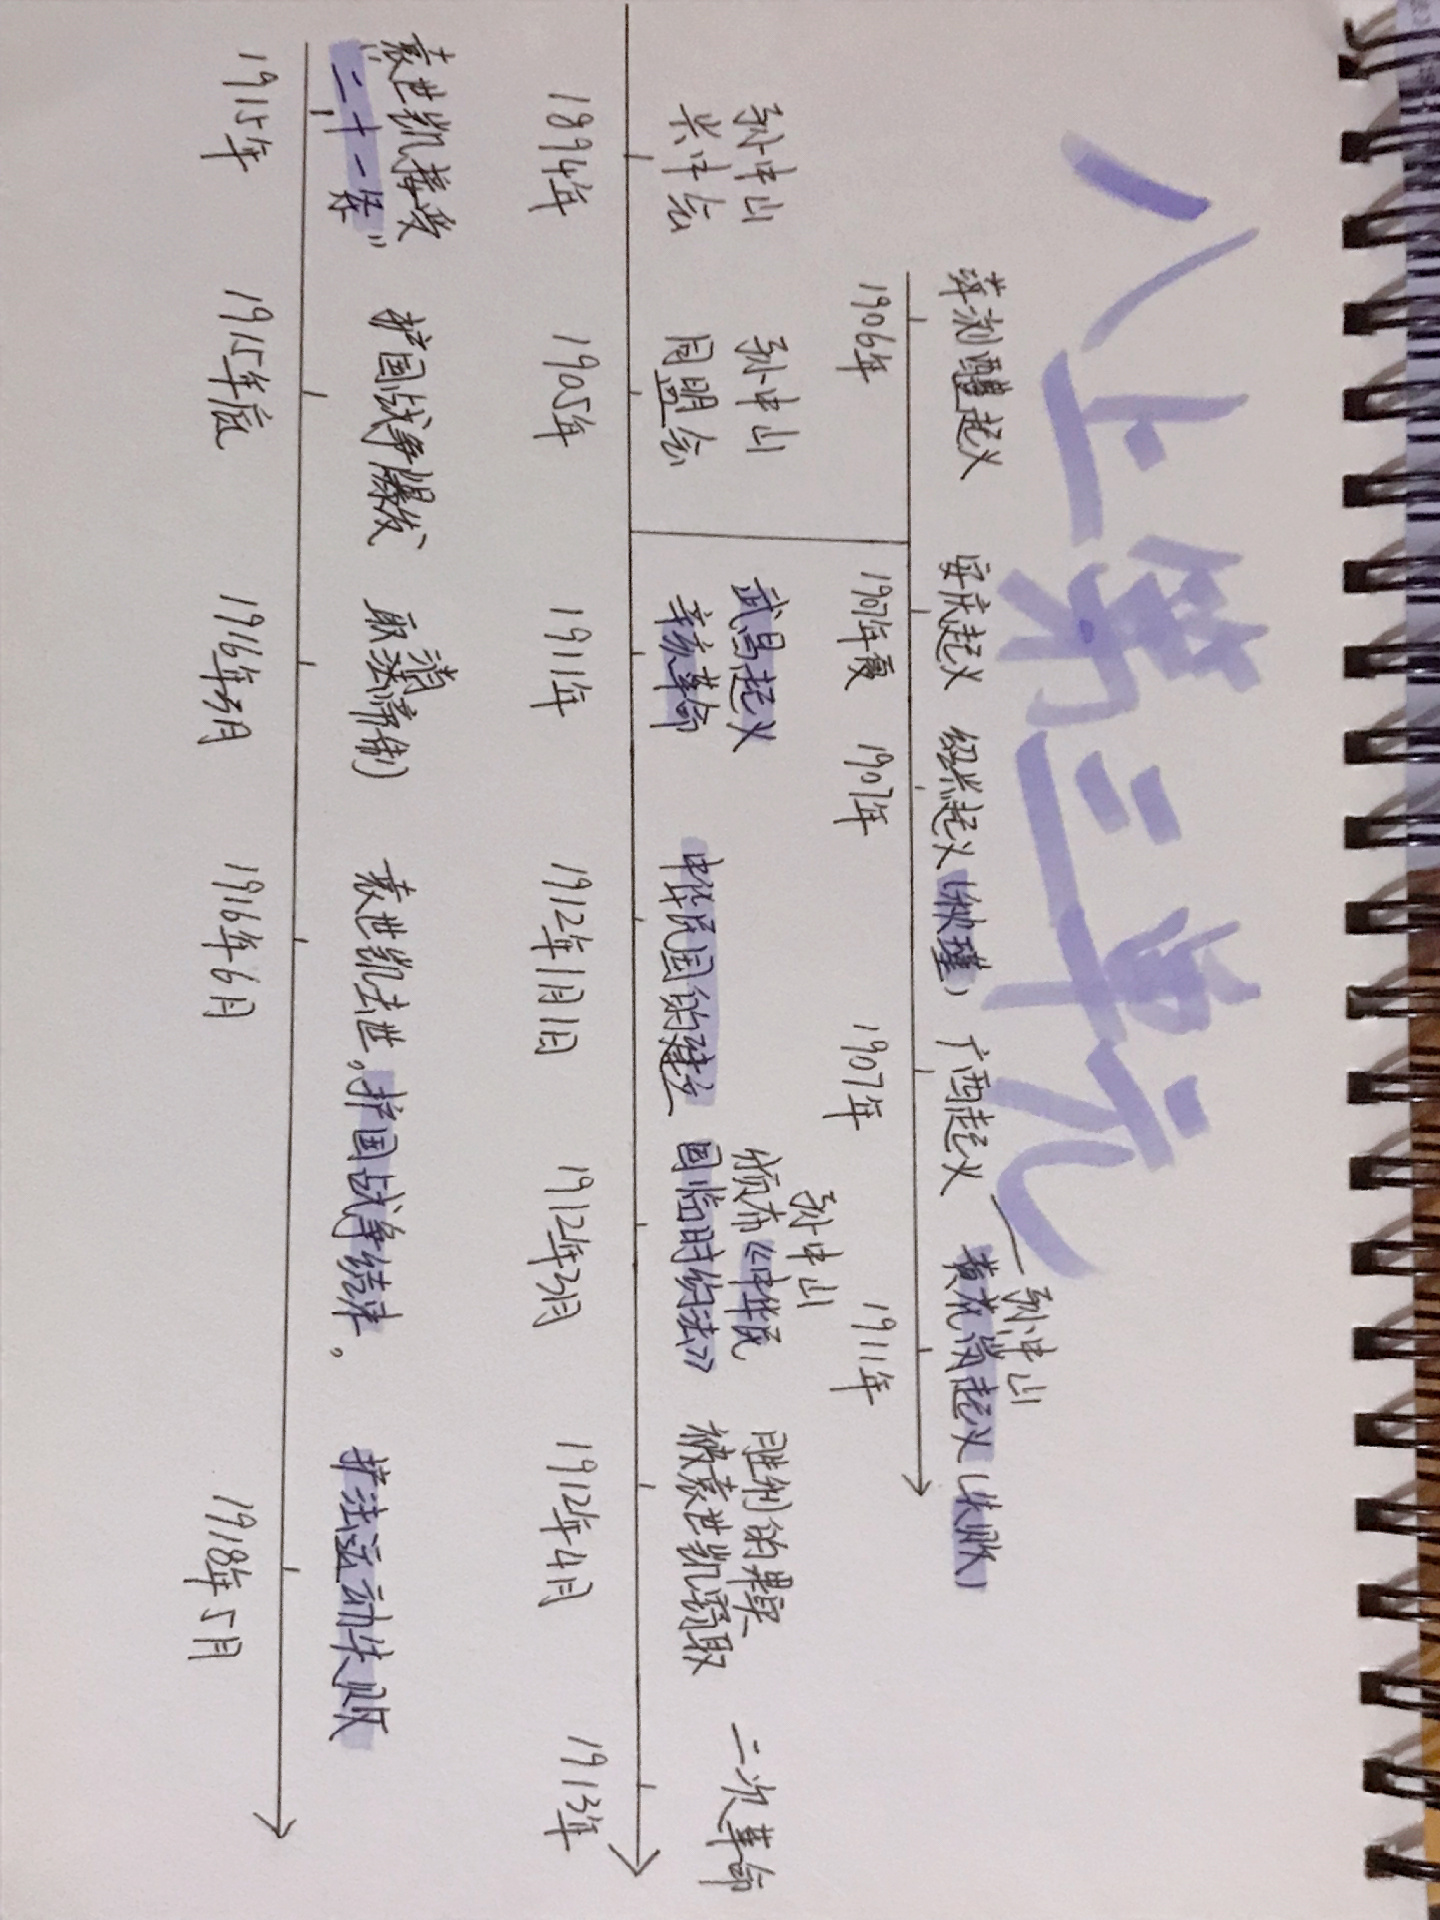 八上第三单元
孙中山
萍浏醴起义 安庆起义 绍兴起义(秋瑾) 广西起义 黄花岗起义(失败)
1906年 1907年夏 1907年 1907年 1911年
孙中山
孙中山 孙中山 武昌起义 颁布《中华民 胜利的果实 二次革命
兴中会 同盟会 辛亥革命 中华民国的建立 国临时约法》 被袁世凯窃取
1894年 1905年 1911年 1912年1月1日 1912年3月 1912年4月 1913年
袁世凯接受 护国战争爆发 取消(帝制) 袁世凯去世,护国战争结束。 护法运动失败
“二十一条”
1915年 1915年底 1916年3月 1916年6月 1918年5月